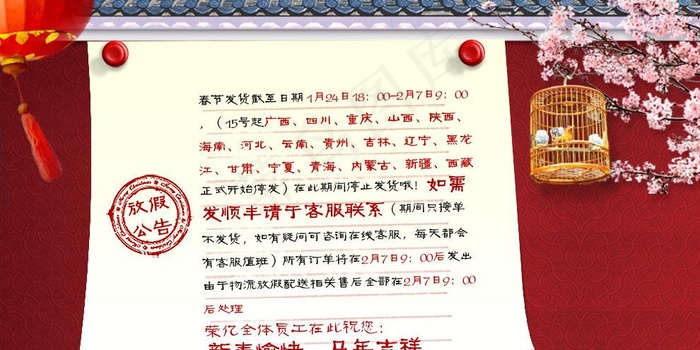 春节发货截至日期1月24日18：00-2月7日9：00
，（15号起广西、四川、重庆、山西、陕西、
海南、河北、云南、贵州、吉林、辽宁、黑龙
江、甘肃、宁夏、青海、内蒙古、新疆、西藏
正式开始停发）在此期间停止发货哦！如需
发顺丰请于客服联系（期间只接单
不发货，如有疑问可咨询在线客服，每天都会
有客服值班）所有订单将在2月7日9：00后发出
由于物流放假配送相关售后全部在2月7日9：00
后处理
荣亿全体员工在此祝您：
新春愉快 马年吉祥
放假
公告